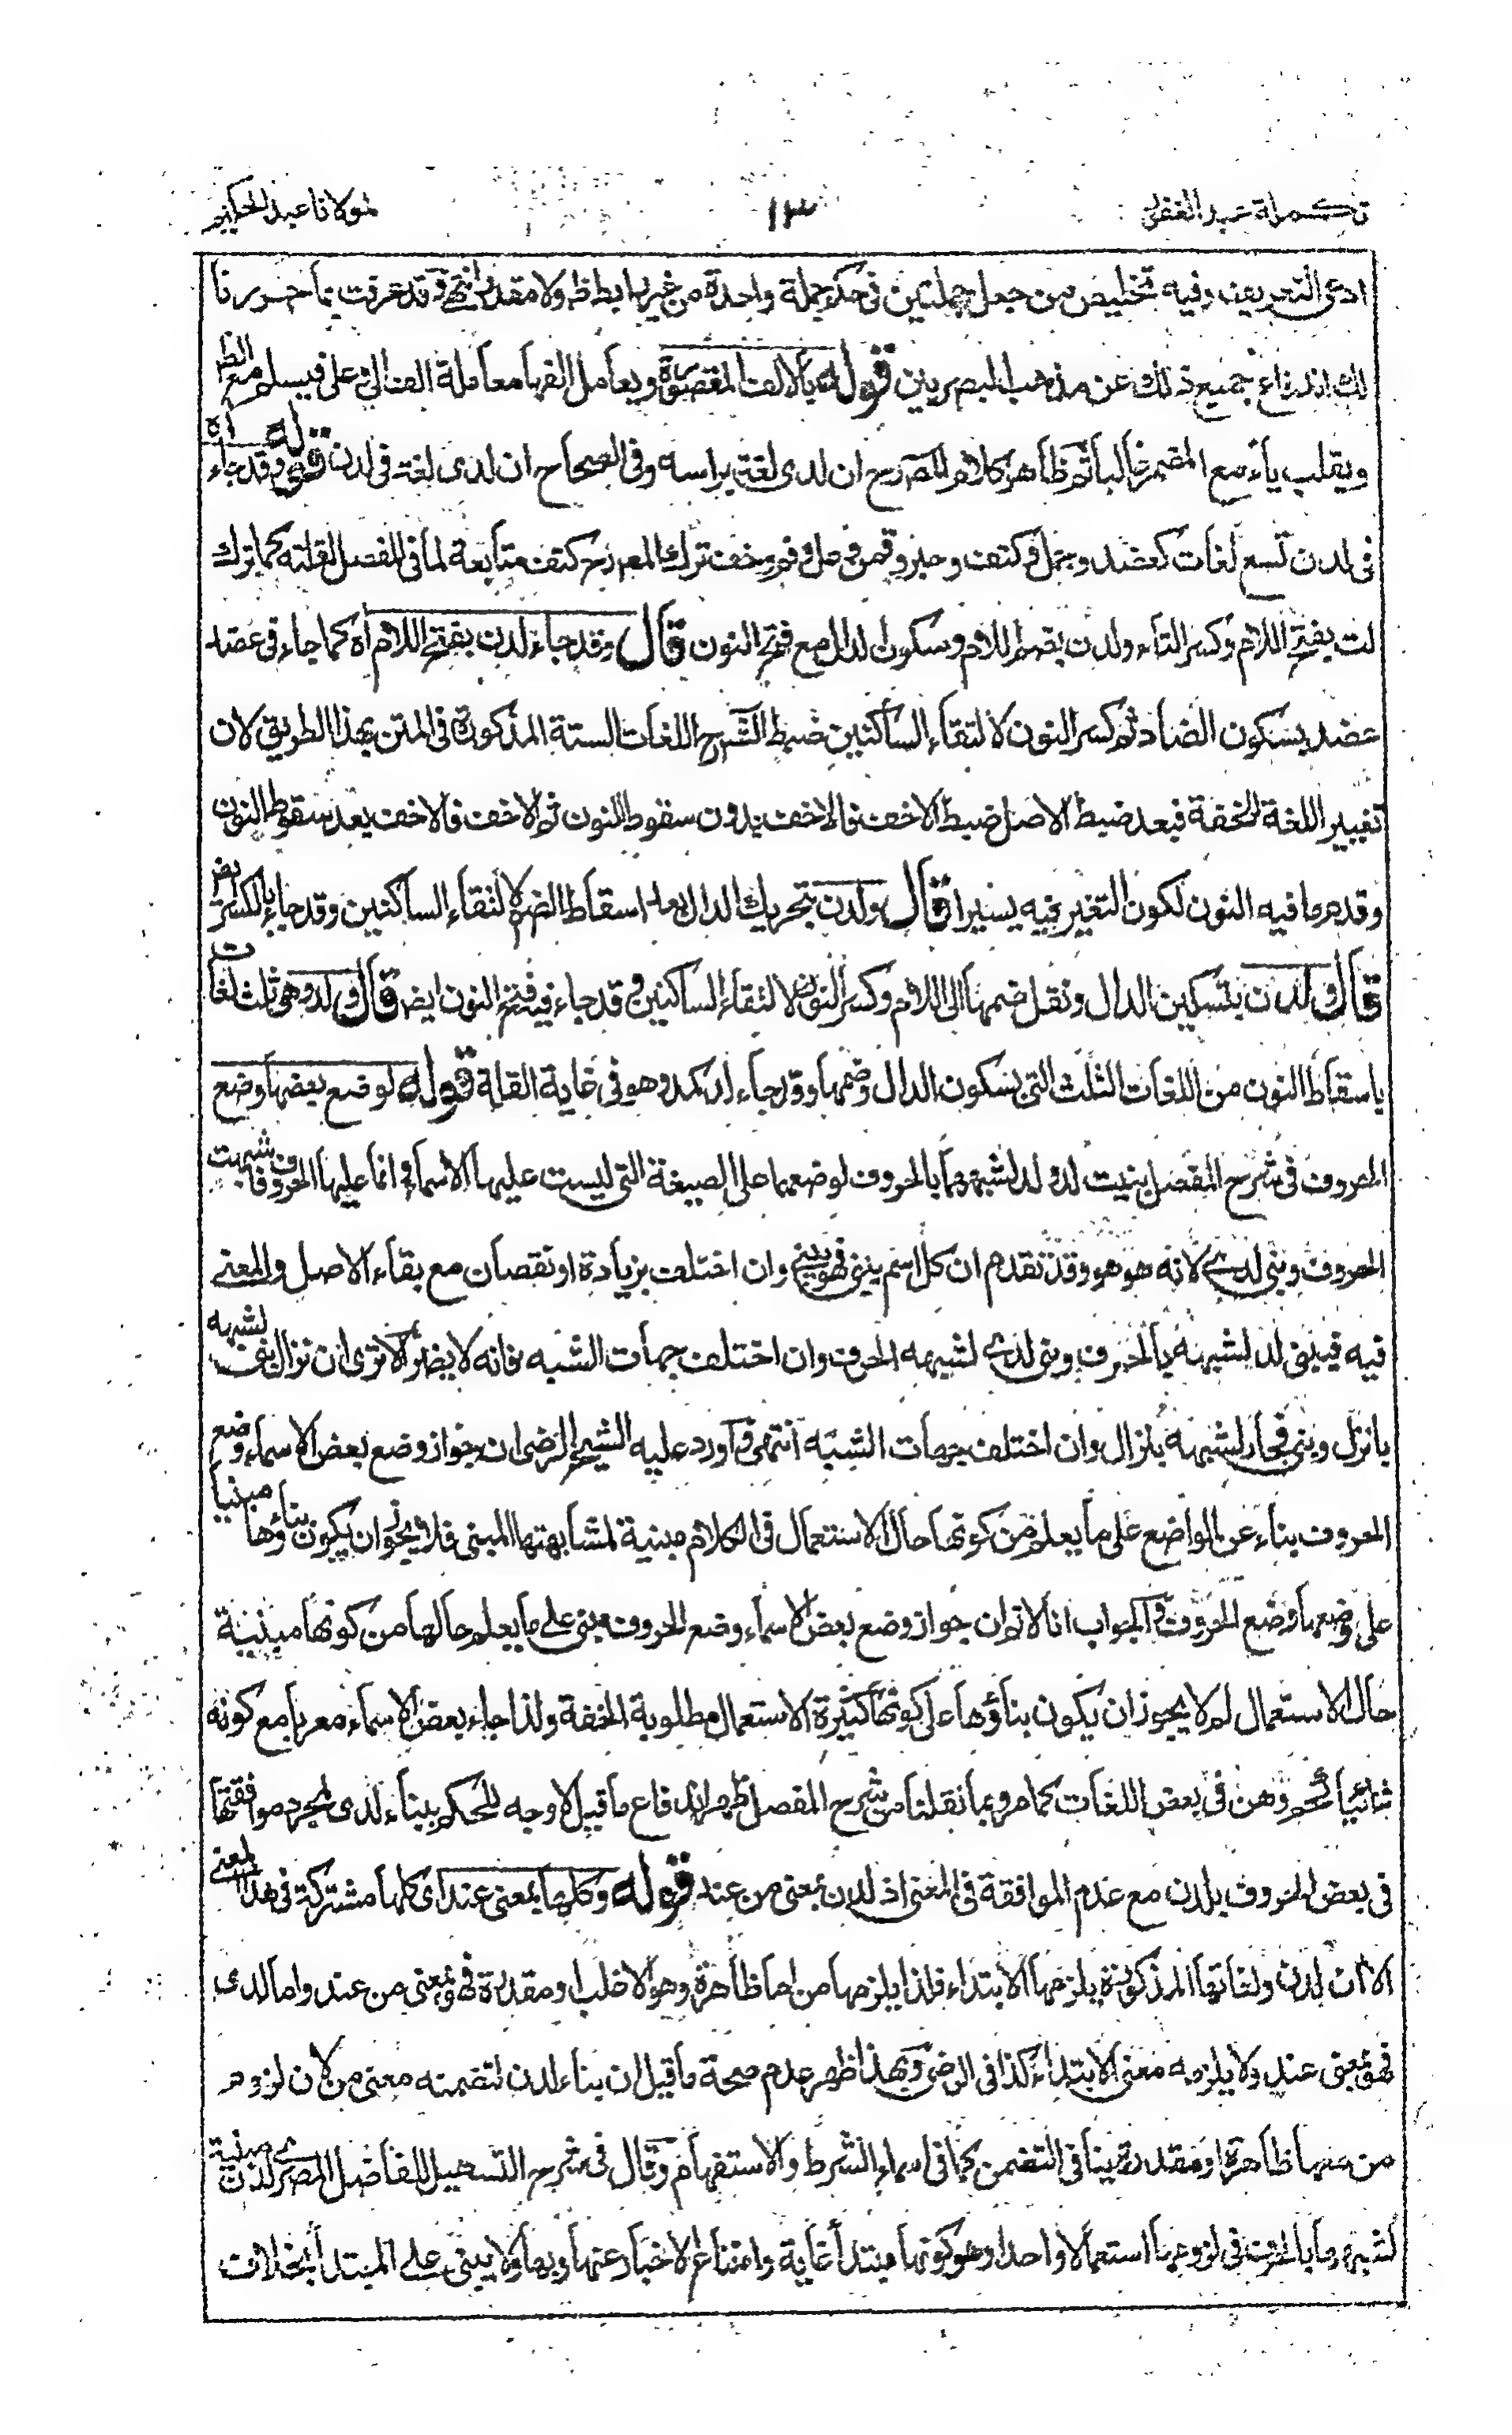 تكملة عبد الغفور
١٣
لمولانا عبد الحكيم
ادعى التعريف وفيه تخليص من جعل جملتين فى حكم جملة واحدة من غير رابط ظ ولا مقدر انتهى وقد عرفت بما حررنا
لك اندفاع جميع ذلك عن مذهب البصريين قوله بالالف المقصورة ويعامل الفها معاملة الف الى وعلى فيسلم مع الظ
ويقلب ياء مع المضمر غالبا ثم ظاهر كلام المصرح ان لدى لغة براسه وفى الصحاح ان لدى لغة فى لدن قوله وقد جاء اه
فى لدن تسع لغات كعضد وجمل وكتف وجير وقمن ومل وفم وخف ترك المصرح كتف متابعة لما فى المفصل لقلته كما ترك
لت بفتح اللام وكسر التاء ولدن بضم اللام وسكون الدال مع فتح النون قال وقد جاء لدن بفتح اللام اه كما جاء فى عضد
عضد بسكون الضاد ثم كسر النون لالتقاء الساكنين ضبط الشرح اللغات الستة المذكورة فى المتن بهذا الطريق لان
تغيير اللغة للخفة فبعد ضبط الاصل ضبط الاخف فالاخف بدون سقوط النون ثم الاخف فالاخف بعد سقوط النون
وقدم ما فيه النون لكون التغير فيه يسيرا قال ولدن بتحريك الدال بعد اسقاط الضم لالتقاء الساكنين وقد جاء بالكسر ايض
قال ولدن بتسكين الدال ونقل ضمها الى اللام وكسر النون لالتقاء الساكنين وقد جاء فيه فتح النون ايض قال ولد وهى ثلث لغات
باسقاط النون من اللغات الثلث التى بسكون الدال وضمها وقد جاء لد كمد وهو فى غاية القلة قوله لوضع بعضها وضع
الحروف فى شرح المفصل بنيت لد ولد لشبههما بالحروف لوضعهما على الصيغة التى ليست عليها الاسماء وانما عليها الحروف فاشبهت
الحروف وبنى لدى لانه هو هو وقد تقدم ان كل اسم يبنى فهو يبنى وان اختلف بزيادة او نقصان مع بقاء الاصل والمعنى
فيه فيبنى لد لشبهه بالحرف وبنى لدى لشبهه الحرف وان اختلف جهات الشبه فانه لا يضر الا ترى ان نزال بنى لشبهه
بانزل وبنى فجار لشبهه بنزال وان اختلف جهات الشبه انتهى واورد عليه الشيخ الرضى ان جواز وضع بعض الاسماء وضع
الحروف بناء عن الواضع على ما يعلم من كونها حال الاستعمال فى الكلام مبنية لمشابهتها المبنى فلا يجوز ان يكون بناؤها مبنيا
على وضعها وضع الحروف والجواب انا لا نم ان جواز وضع بعض الاسماء وضع الحروف مبنى على ما يعلم حالها من كونها مبنية
حال الاستعمال لم لا يجوز ان يكون بناؤها على كونها كثيرة الاستعمال مطلوبة الخفة ولذا جاء بعض الاسماء معربا مع كونه
ثنائيا نحو وهن فى بعض اللغات كما مر وبما نقلنا من شرح المفصل ظهر اندفاع ما قيل لا وجه للحكم ببناء لدى لمجرد موافقتها
فى بعض الحروف بلدن مع عدم الموافقة فى المعنى اذ لدن بمعنى من عند قوله وكلها بمعنى عند اى كلها مشتركة فى هذا المعنى
الا ان لدن ولغاتها المذكورة يلزمها الابتداء فلذا يلزمها من اما ظاهرة وهو الاغلب او مقدرة فهو بمعنى من عند واما لدى
فهو بمعنى عند ولا يلزمه معنى الابتداء كذا فى الرضى وبهذا ظهر عدم صحة ما قيل ان بناء لدن لتضمنه معنى من لان لزوم
من معها ظاهرة او مقدرة ينافى التضمن كما فى اسماء الشرط والاستفهام وقال فى شرح التسهيل للفاضل المصرى لدن مبنية
لشبهها بالحرف فى لزومها استعمالا واحدا وهو كونها مبتدأ غاية وامتناع الاخبار عنها وبها ولا يبنى على المبتدأ بخلاف